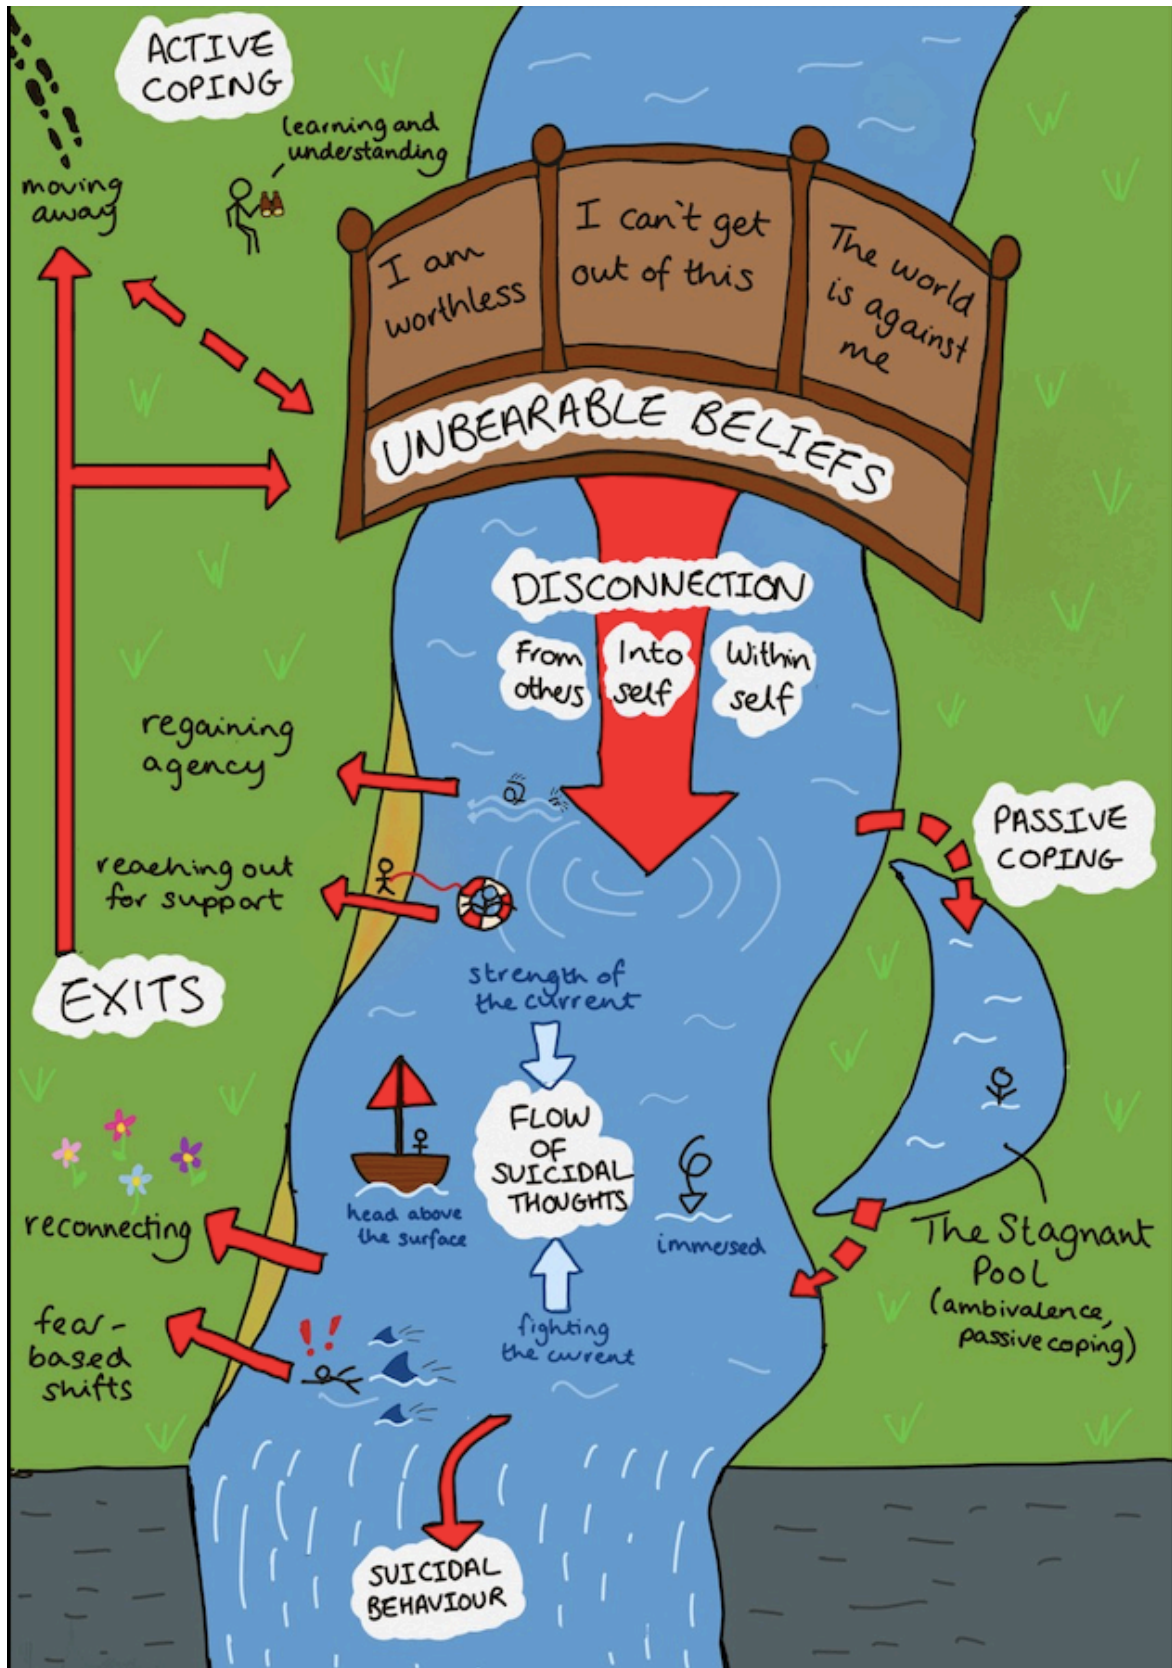 ACTIVE
COPING
learning and
understanding
moving
away
I am
worthless
I can't get
out of this
The world
is against
me
UNBEARABLE BELIEFS
DISCONNECTION
From
others
Into
self
Within
self
regaining
agency
reaching out
for support
EXITS
PASSIVE
COPING
strength of
the current
FLOW
OF
SUICIDAL
THOUGHTS
head above
the surface
immersed
fighting
the current
reconnecting
fear-
based
shifts
!!
The Stagnant
Pool
(ambivalence,
passive coping)
SUICIDAL
BEHAVIOUR